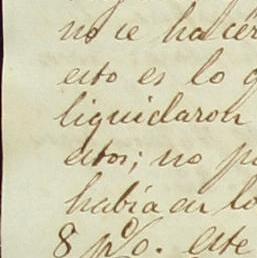 no se hacer
esto es lo
liquidaron
estos; no
había en lo
8 p%. este